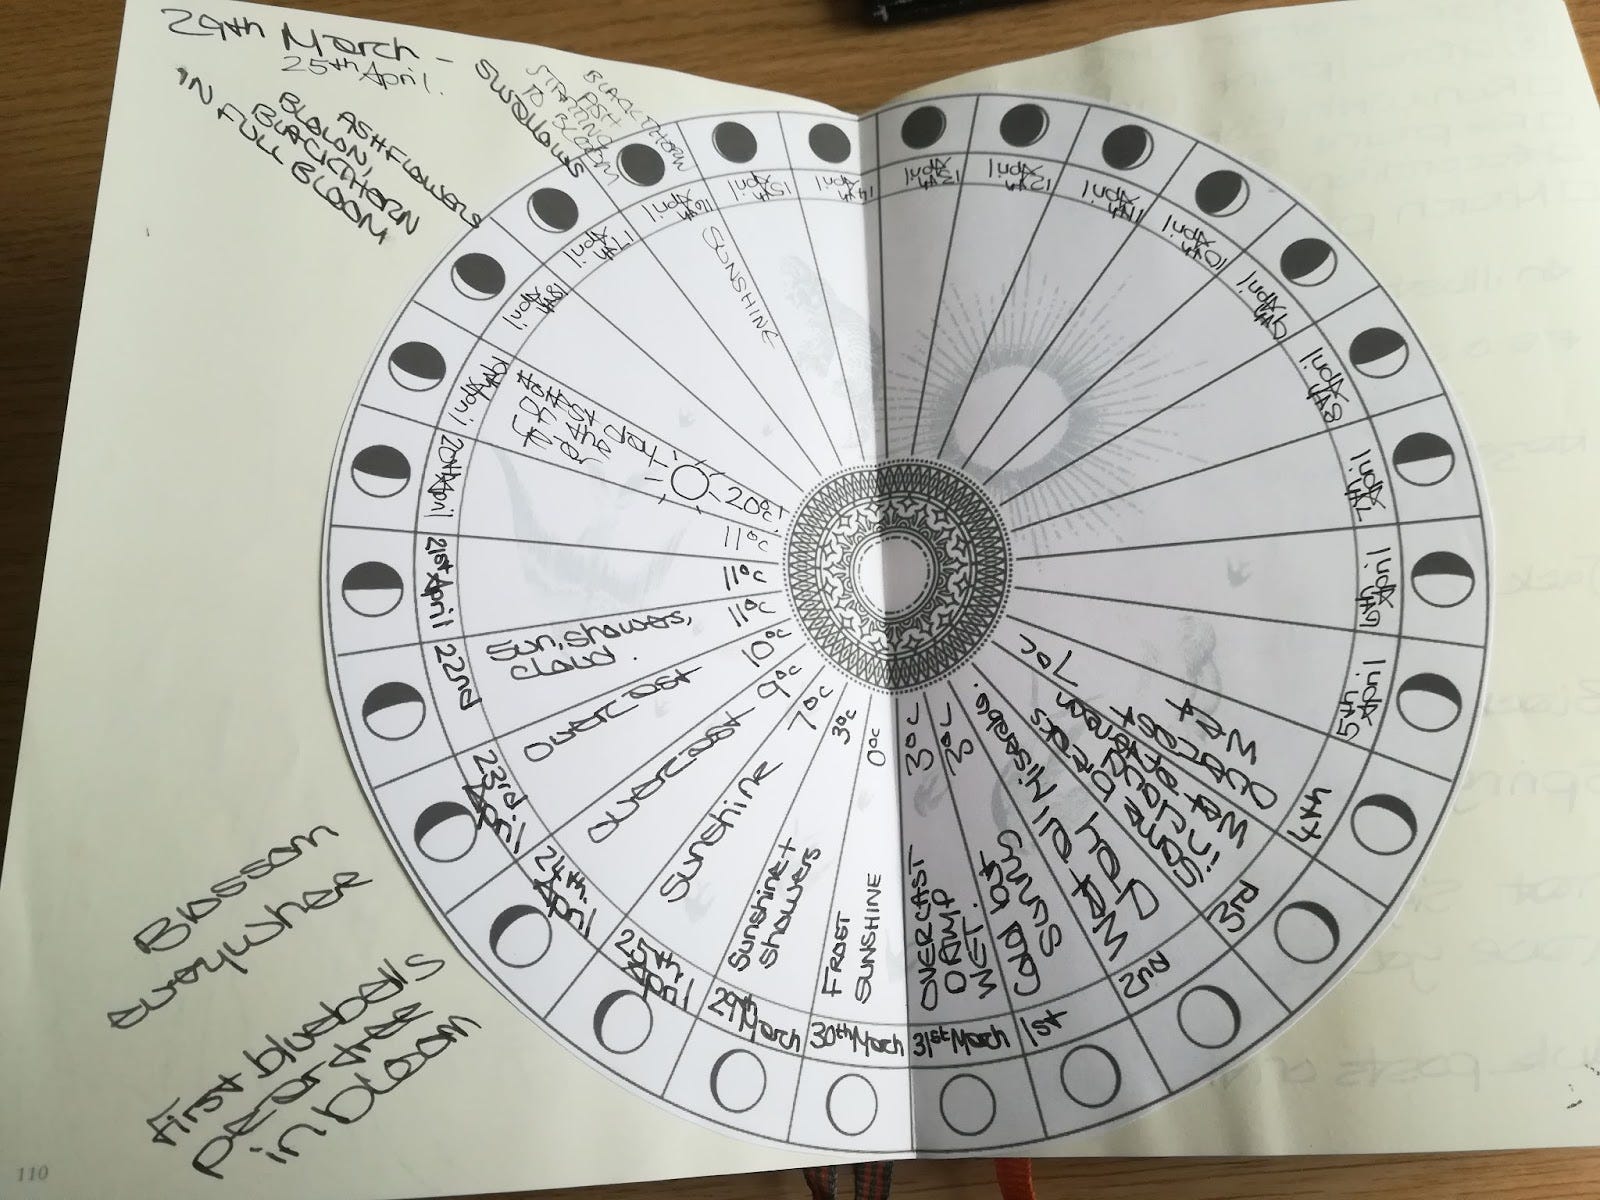 29th March -
25th April.
Swallows
BLACKTHORN
ASH
STARTING
TO BLOOM
ASH FLOWERS
BLOWN,
BLACKTHORN
IN FULL BLOOM
14th April
13th April
12th April
11th April
10th April
9th April
8th April
7th April
6th April
5th April
4th
3rd
2nd
1st
31st March
30th March
29th March
25th April
24th April
23rd April
22nd
21st April
20th April
19th April
18th April
17th April
16th April
15th April
SUNSHINE
Hottest day
in the
20°C!
11°C
11°C
11°C
Sun, showers,
cloud.
10°C
overcast
9°C
overcast
7°C
Sunshine
3°C
Sunshine +
showers
0°C
FROST
SUNSHINE
3°C
OVERCAST
DAMP
WET.
3°C
Cold but
Sunny
Wet all
day
Some breaks
in cloud
wet
7°C
Overcast
Wet
Blossom
everywhere
First bluebell
in bloom
110